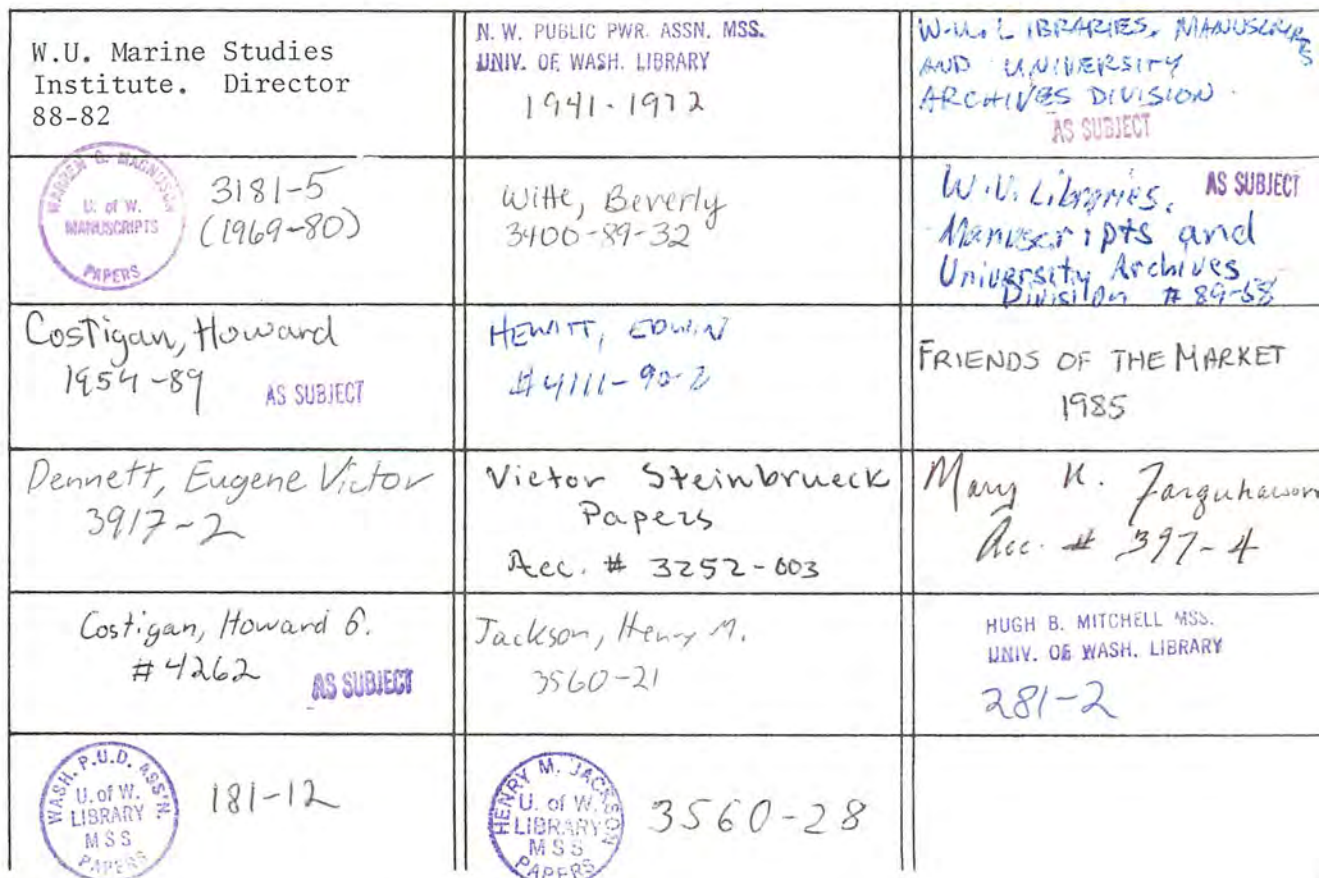 W.U. Marine Studies
Institute. Director
88-82
N. W. PUBLIC PWR. ASSN. MSS.
UNIV. OF WASH. LIBRARY
1941-1972
W.U. LIBRARIES, MANUSCRIPTS
AND UNIVERSITY
ARCHIVES DIVISION.
AS SUBJECT
WARREN G. MAGNUSON
U. of W.
MANUSCRIPTS
PAPERS
3181-5
(1969-80)
Witte, Beverly
3400-89-32
W.U. Libraries.
AS SUBJECT
Manuscripts and
University Archives
Division # 89-58
Costigan, Howard
1954-89
AS SUBJECT
HEWITT, EDWIN
#4111-90-2
FRIENDS OF THE MARKET
1985
Dennett, Eugene Victor
3917-2
Victor Steinbrueck
Papers
Acc. # 3252-003
Mary K.
Acc. # 397-4
Costigan, Howard G.
#4262
AS SUBJECT
Jackson, Henry M.
3560-21
HUGH B. MITCHELL MSS.
UNIV. OF WASH. LIBRARY
281-2
WASH. P.U.D. ASS'N.
U. of W.
LIBRARY
MSS
PAPERS
181-12
HENRY M. JACKSON
U. of W.
LIBRARY
MSS
PAPERS
3560-28